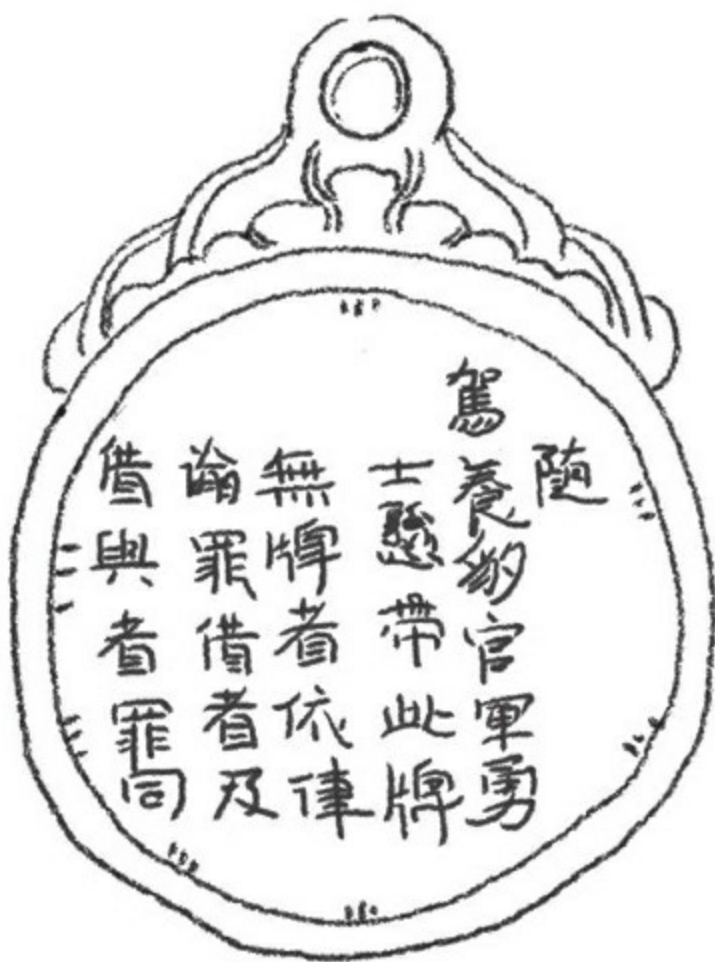 隨
駕養豹官軍勇
士懸帶此牌
無牌者依律
論罪借者及
借與者罪同